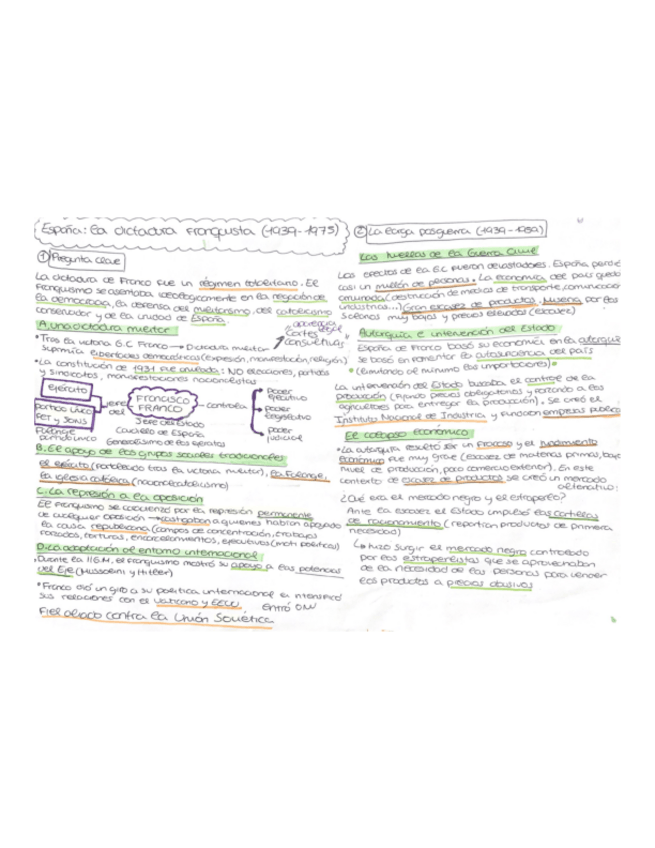 España: la dictadura franquista (1939-1975)
① Pregunta clave
La dictadura de Franco fue un régimen totalitario. El
franquismo se asentaba ideológicamente en la negación de
la democracia, la defensa del militarismo, del catolicismo
conservador y de la unidad de España.
A. Una dictadura militar
apariencia legal
"Cortes consultivas"
• Tras la victoria G.C Franco → Dictadura militar
suprimía libertades democráticas (expresión, manifestación, religión)
• La constitución de 1931 fue anulada: NO elecciones, partidos
y sindicatos, manifestaciones nacionalistas
ejército
partido único
FET y JONS
Falange
partido único
jefe del
FRANCISCO
FRANCO
Jefe del Estado
Caudillo de España
Generalísimo de los ejércitos
controla
Poder ejecutivo
poder legislativo
poder judicial
B. El apoyo de los grupos sociales tradicionales
el ejército (fortalecido tras la victoria militar), la Falange,
la iglesia católica (nacionalcatolicismo)
C. La represión a la oposición
El franquismo se caracterizó por la represión permanente
de cualquier oposición → castigaban a quienes habían apoyado
la causa republicana (campos de concentración, trabajos
forzados, torturas, encarcelamientos, ejecutivos (moti políticos)
D. La adaptación al entorno internacional
• Durante la II G.M, el franquismo mostró su apoyo a las potencias
del Eje (Mussolini y Hitler)
• Franco dió un giro a su política internacional e intensificó
sus relaciones con el Vaticano y EEUU.
entró ONU
Fiel aliado contra la Unión Soviética
② La larga posguerra (1939-1959)
Las huellas de la Guerra Civil
Los efectos de la G.C fueron devastadores. España perdió
casi un millón de personas. La economía del país quedó
arruinada (destrucción de medios de transporte, comunicación
industrias...) Gran escasez de productos. Miseria por los
salarios muy bajos y precios elevados (escasez)
Autarquía e intervención del Estado
España de Franco basó su economía en la autarquía
se basó en fomentar la autosuficiencia del país
• (limitando al mínimo las importaciones) •
La intervención del Estado buscaba el control de la
producción (fijando precios obligatorios y forzando a los
agricultores para entregar la producción). Se creó el
Instituto Nacional de Industria y fundaron empresas públicas
El colapso económico
• La autarquía resultó ser un fracaso y el hundimiento
económico fue muy grave (escasez de materias primas, bajo
nivel de producción, poco comercio exterior). En este
contexto de escasez de productos se creó un mercado
alternativo:
¿Qué era el mercado negro y el estraperlo?
Ante la escasez el Estado impulsó las cartillas
de racionamiento (repartían productos de primera
necesidad)
↳ hizo surgir el mercado negro controlado
por los estraperlistas que se aprovechaban
de la necesidad de las personas para vender
los productos a precios abusivos